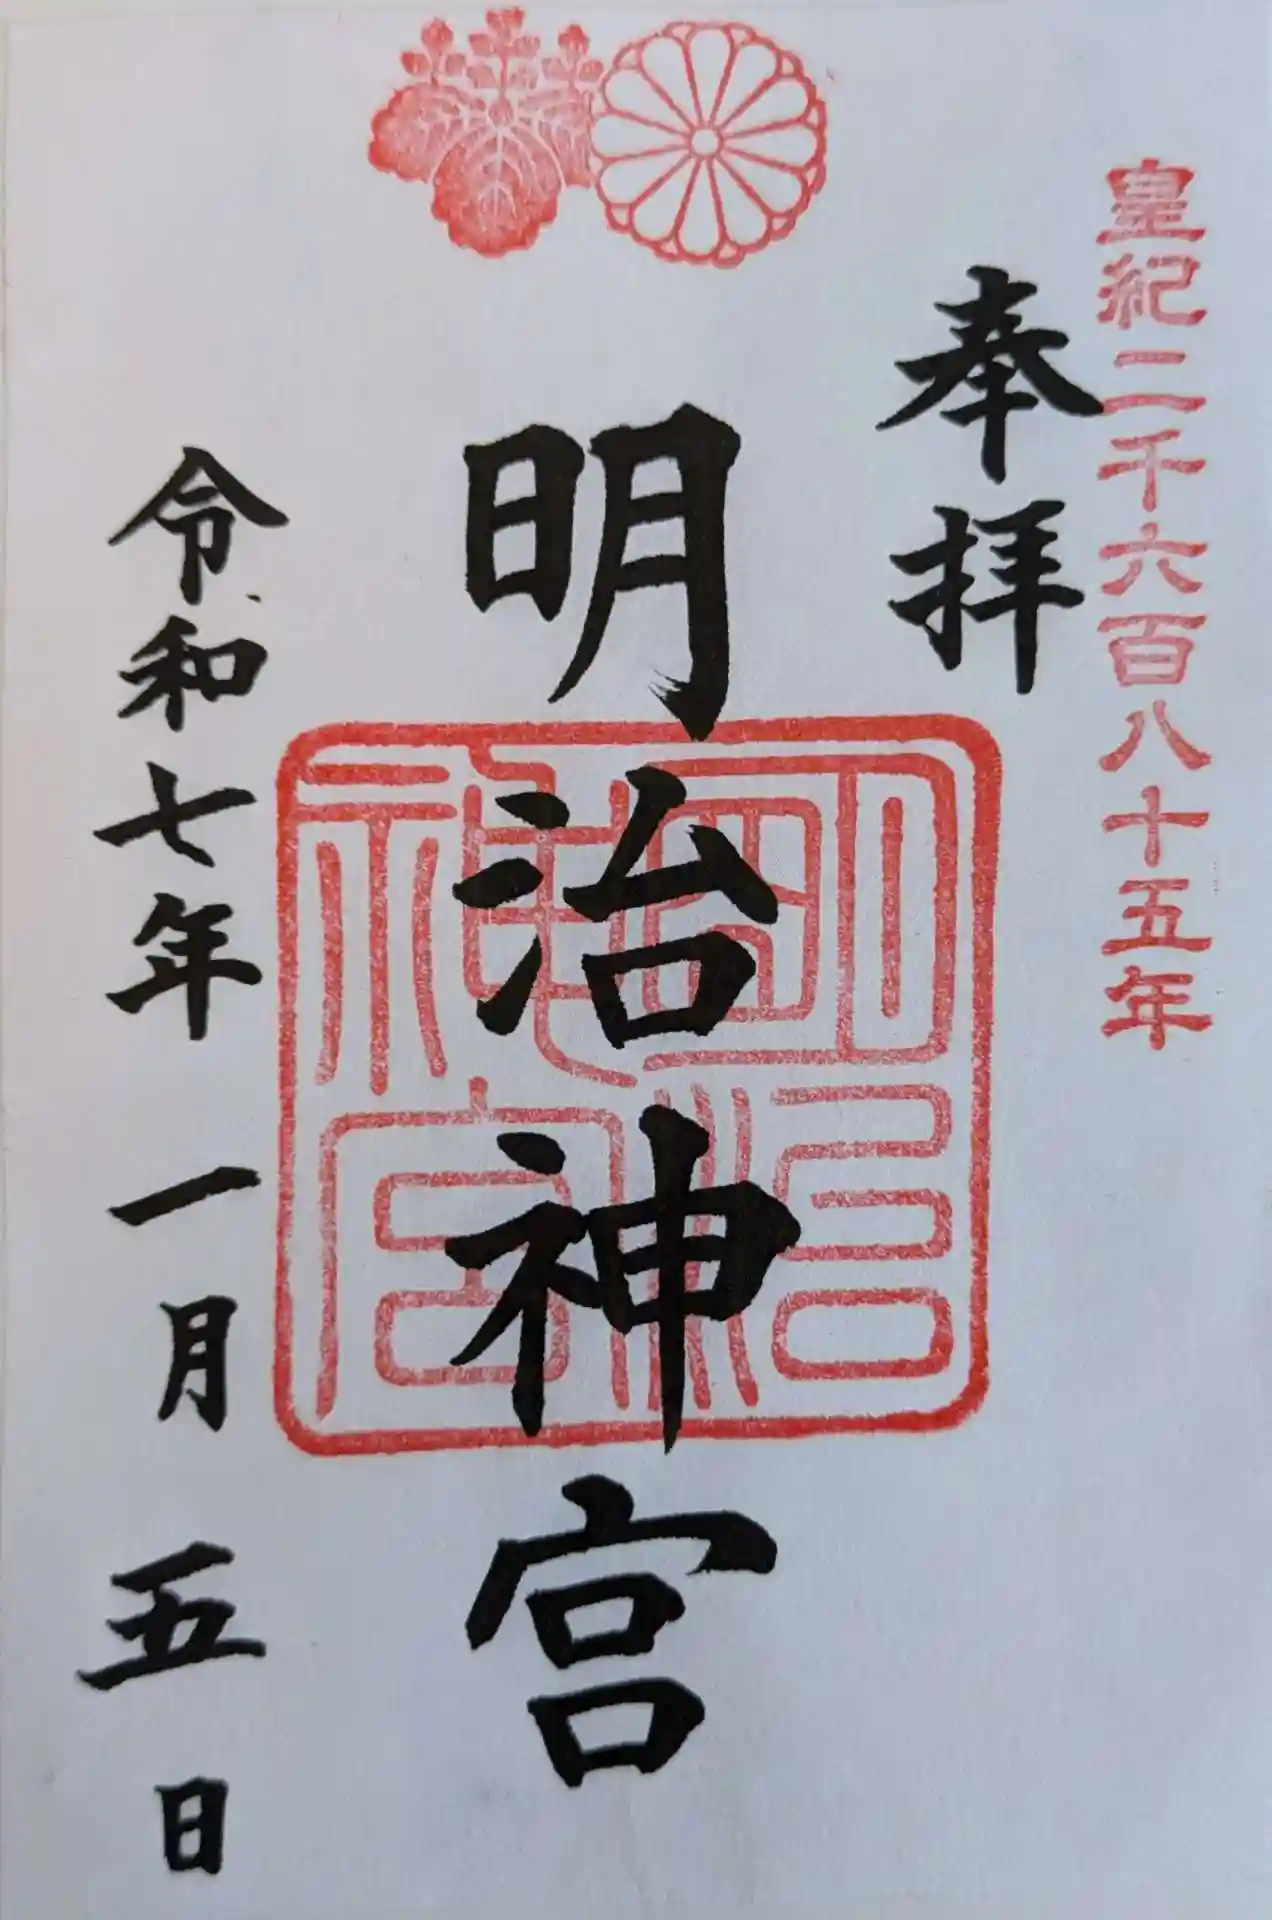 皇紀二千六百八十五年
奉拝
明治神宮
明治神宮
令和七年一月五日